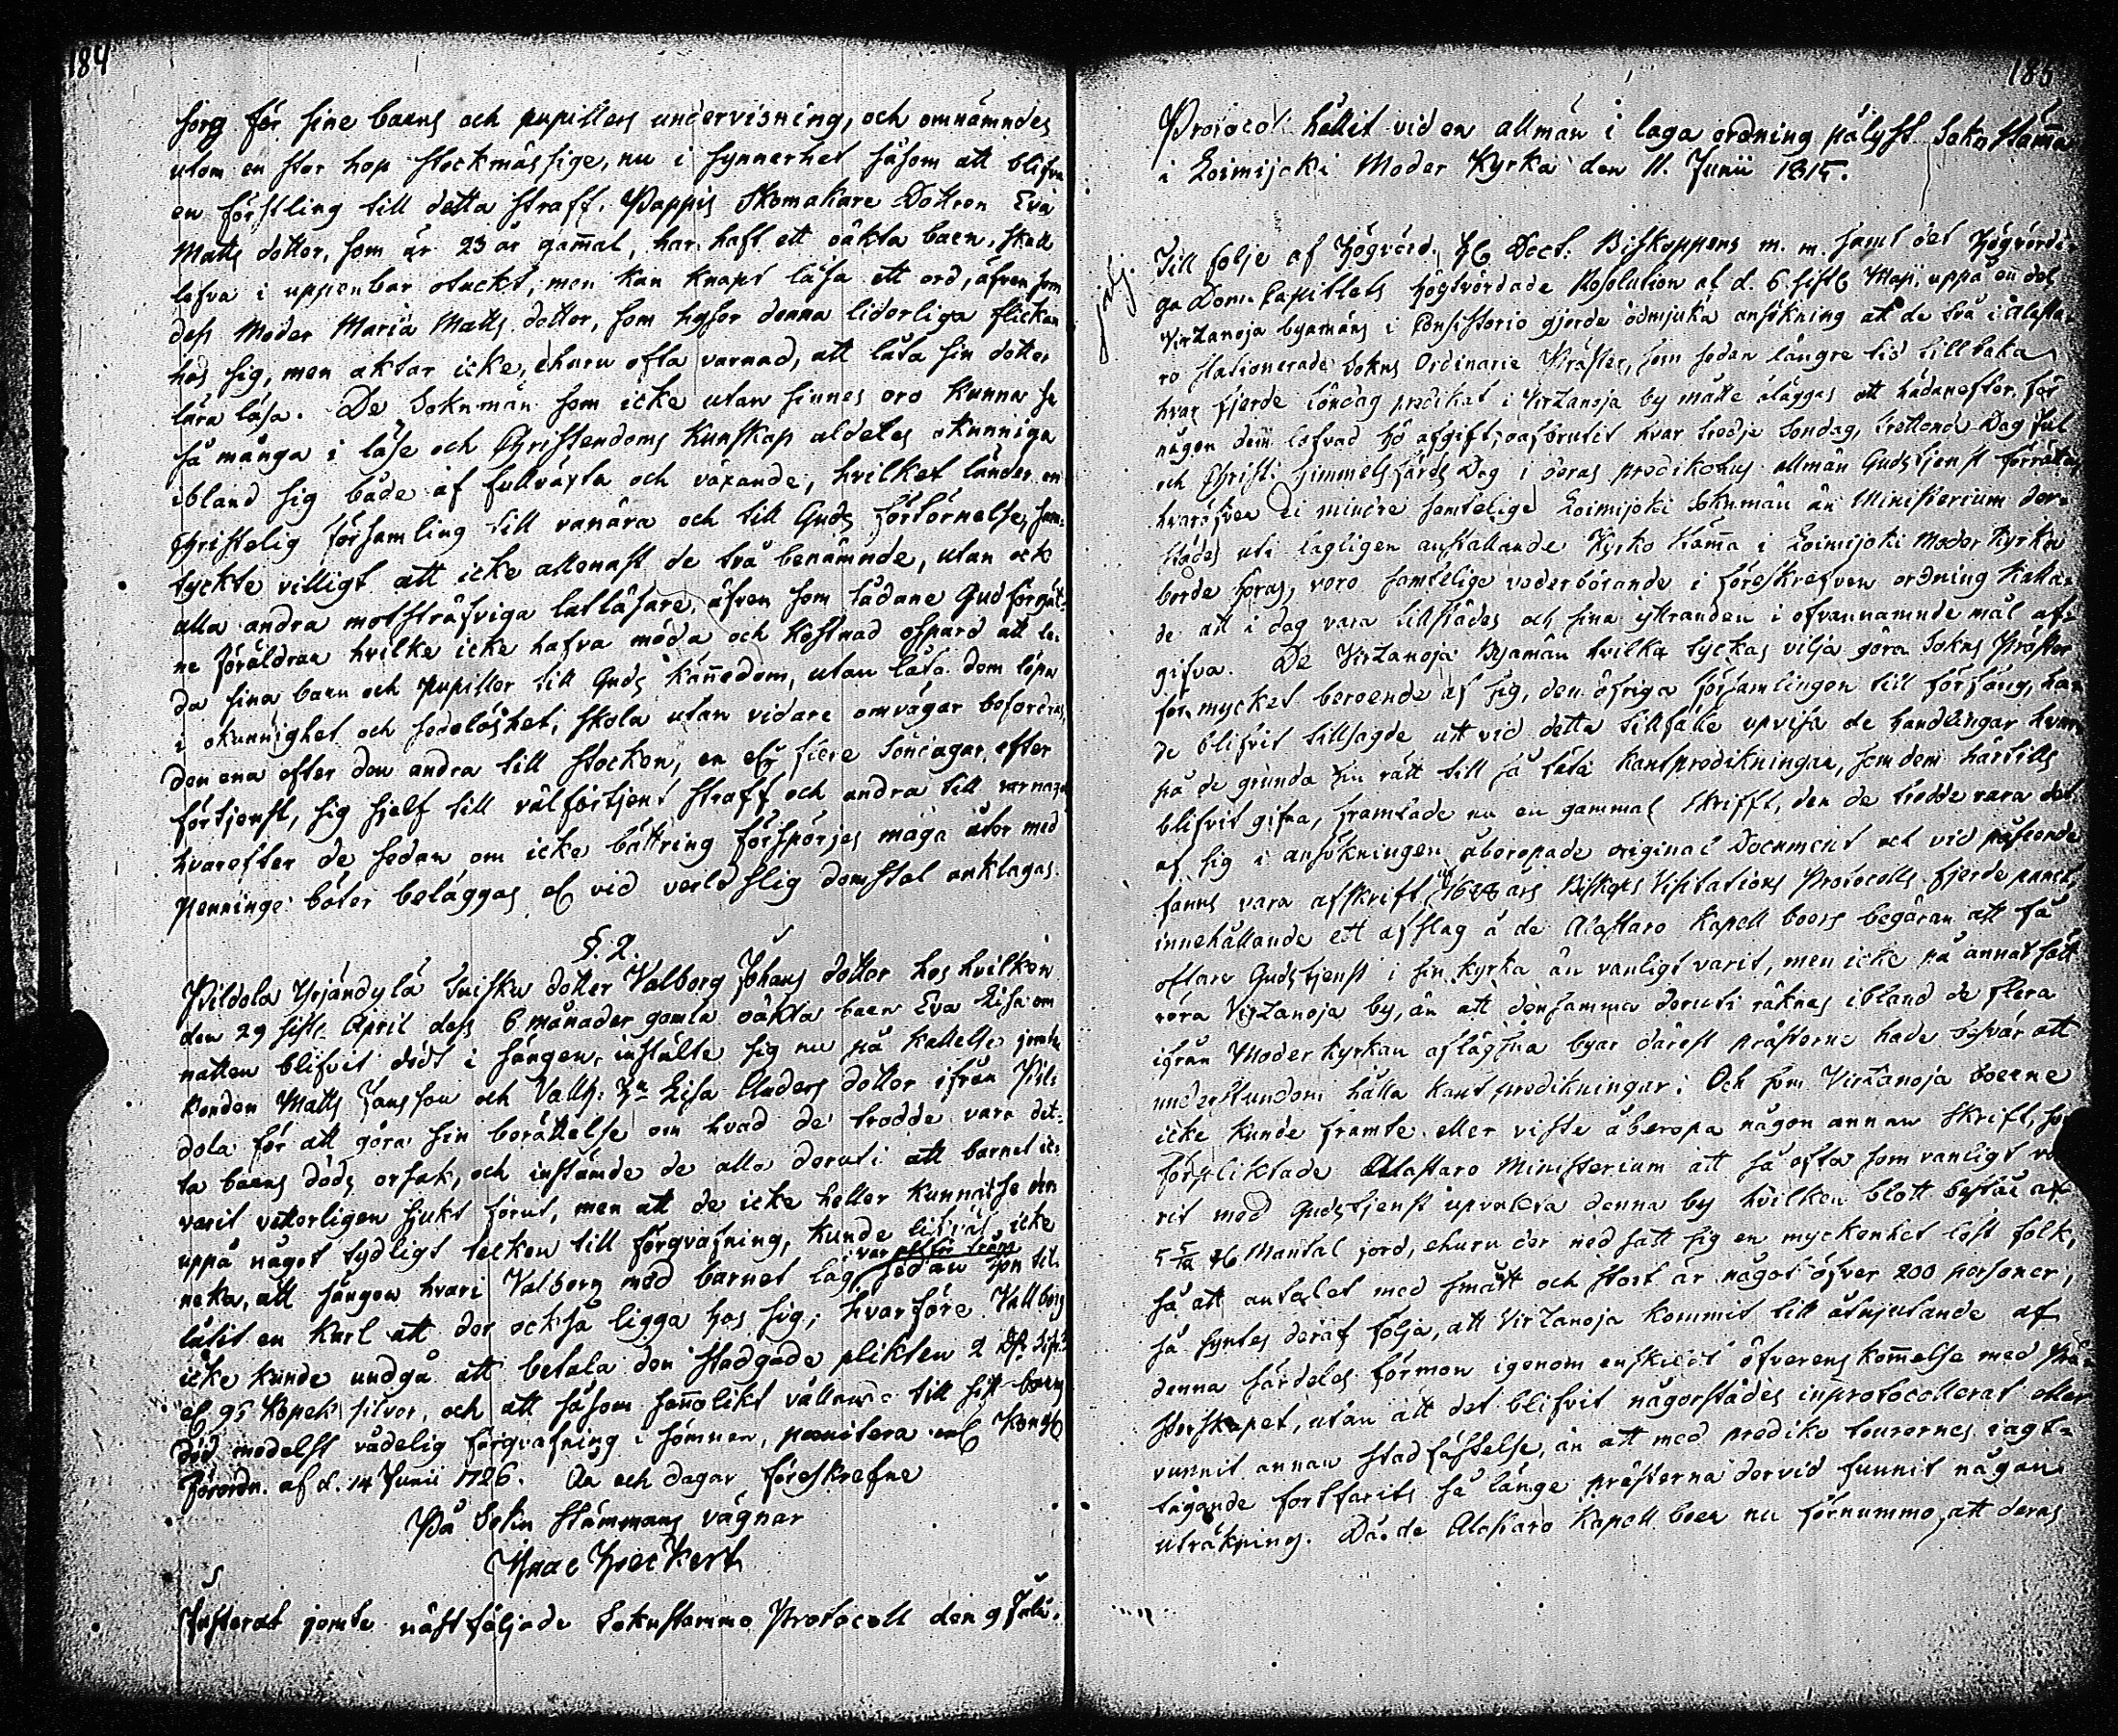 184
sorg för sine barns och pupillers undervisning, och omnämndes
utom en stor hop stockmässige, nu i synnerhet såsom att blifva
en förstling till detta straff. Pappis Skomakare Dottren Eva
Matts dotter, som är 23 år gam̄al, har haft ett oäkta barn, skall
lefva i uppenbar otuckt, men kan knapt läsa ett ord, äfven som
dess Moder Maria Matts dotter, som hyser denna liderliga flickan
hos sig, men aktar icke, ehuru ofta varnad, att låta sin dotter
lära läsa. De Soknemän som icke utan sinnes oro kunna se
så många i läse och Christendoms kunskap aldeles okunniga
ibland sig både af fullväxta och växande, hvilket länder en
Christelig församling till vanära och till Guds förtörnelse, sam-
tyckte villigt att icke allenast de två benämnde, utan ock
alla andra motsträfviga latläsare, äfven som sådane Gudförgät-
ne föräldrar hvilke icke hafva möda och kostnad ospard att le-
da sina barn och pupiller till Guds kän̄edom, utan låta dem löpa
i okunnighet och sedeslöshet, skola utan vidare omvägar befordras,
den ena efter den andra till stocken, en el. flere Söndagar, efter
förtjenst, sig sjelf till välförtjent straff och andra till varnagel
hvarefter de sedan om icke bättring förspörjes måga utom med
penninge böter beläggas el. vid verldslig domstol anklagas.
§. 2.
Pildola Yrjändylä Inhises dotter Valborg Johans dotter hos hvilken
den 29 sistl. April dess 6 månader gamla oäkta barn Eva Lisa om
natten blifvit dödt i sängen, instälte sig nu på kallelse jemte
bonden Matts Jansson och Vallh. H:u Lisa Anders dotter ifrån Pil-
dola för att göra sin berättelse om hvad de trodde vara det-
ta barns döds orsak, och instämde de alla deruti att barnet ic-
varit vetterligen sjukt förut, men att de icke heller kunnat se der
uppå något tydligt tecken till förqvafning, kunde likväl icke
neka, att sängen hvari Valborg med barnet låg, var altför trång sedan hon til-
låtit en Karl att der också ligga hos sig; hvarföre Vallborg
icke kunde undgå att betala den stadgade plikten 2
el. 95 kopek silfver, och att såsom san̄olikt vållande till sitt barns
död medelst vådelig förqvafning i sömnen, pænitera enl. Kongl.
Förordn. af d. 14 Junii 1726. År och dagar föreskrefne
På Sokn stämmans vägnar
Isaac
Justerat jemte nästföljade Soknstämmo Protocoll den 9 Julii.
185
Protocoll hållit vid en allmän i laga ordning pålyst Sokn stäm̄a
i Loimijoki Moder Kyrka den 11. Junii 1815.
Till följe af Högvörd. H. Doct. Biskoppens m. m. samt det Högvördi-
ga Dom-Capitlets högtvördade Resolution af d. 6 sistl. Maji, uppå en del
Virtanoja byamäns i Consistorio gjorde ödmjuka ansökning att de två i Alasta-
ro stationerade Sokns Ordinarie Präster, som sedan längre tid tillbaka
hvar fjerde Söndag predikat i Virtanoja by måtte åläggas att hädanefter, för
någon dem lofvad hö afgift, oafbrutit hvar tredje Söndag, trettonde Dag Jul
och Christi Himmelsfärds Dag i deras predikohus allmän Gudstjenst förrätta,
hvaröfver ei mindre samtelige Loimijoki Soknemän än Ministerium der-
städes uti lagligen anställande Kyrko stäm̄a i Loimijoki Moder Kyrka
borde höras, voro samtelige vederbörande i föreskrefven ordning kalla-
de att i dag vara tillstädes och sina yttranden i ofvannamnde mål af-
gifva. De Virtanoja Byamän hvilka tyckas vilja göra Sokns Präster
för mycket beroende af sig, den öfriga församlingen till förfång, ha-
de blifvit tillsagde att vid detta tillfälle upvisa de handlingar hvar-
på de grunda sin rätt till så täta kantpredikningar, som dem härtills
blifvit gifna, framlade nu en gammal skrifft, den de trodde vara det
af sig i ansökningen åberopade original Document och vid påseende
fanns vara afskrift af års Biskops Visitations Protocolls fjerde punct,
innehållande ett afslag å de Alastaro Kapell boers begäran att få
oftare Gudstjenst i sin Kyrka än vanligt varit, men icke på annat sätt
röra Virtanoja by, än att densamma deruti räknas ibland de flera
ifrån Moder kyrkan aflägsna byar därest prästerne hade besvär att
understundom hålla kantpredikningar. Och som Virtanoja boerne
icke kunde framte eller visste åberopa någon annan skrift, som
förpliktade Alastaro Ministerium att så ofta som vanligt va-
rit med Gudstjenst upvakta denna by hvilken blott består af
5 Mantal jord, ehuru der nedsatt sig en myckenhet löst folk,
så att antalet med smått och stort är något öfver 200 personer;
så syntes deraf följa, att Virtanoja kommit till åtnjutande af
denna särdeles förmon igenom enskildt öfverenskom̄else med Prä-
sterskapet, utan att det blifvit någorstädes inprotocollerat eller
vunnit annan stadfästelse, än att med prediko tourernes iagt-
tagande fortfarits så länge prästerna dervid funnit någon
uträkning. Då de Alastaro Kapell boer nu förnummo, att deras